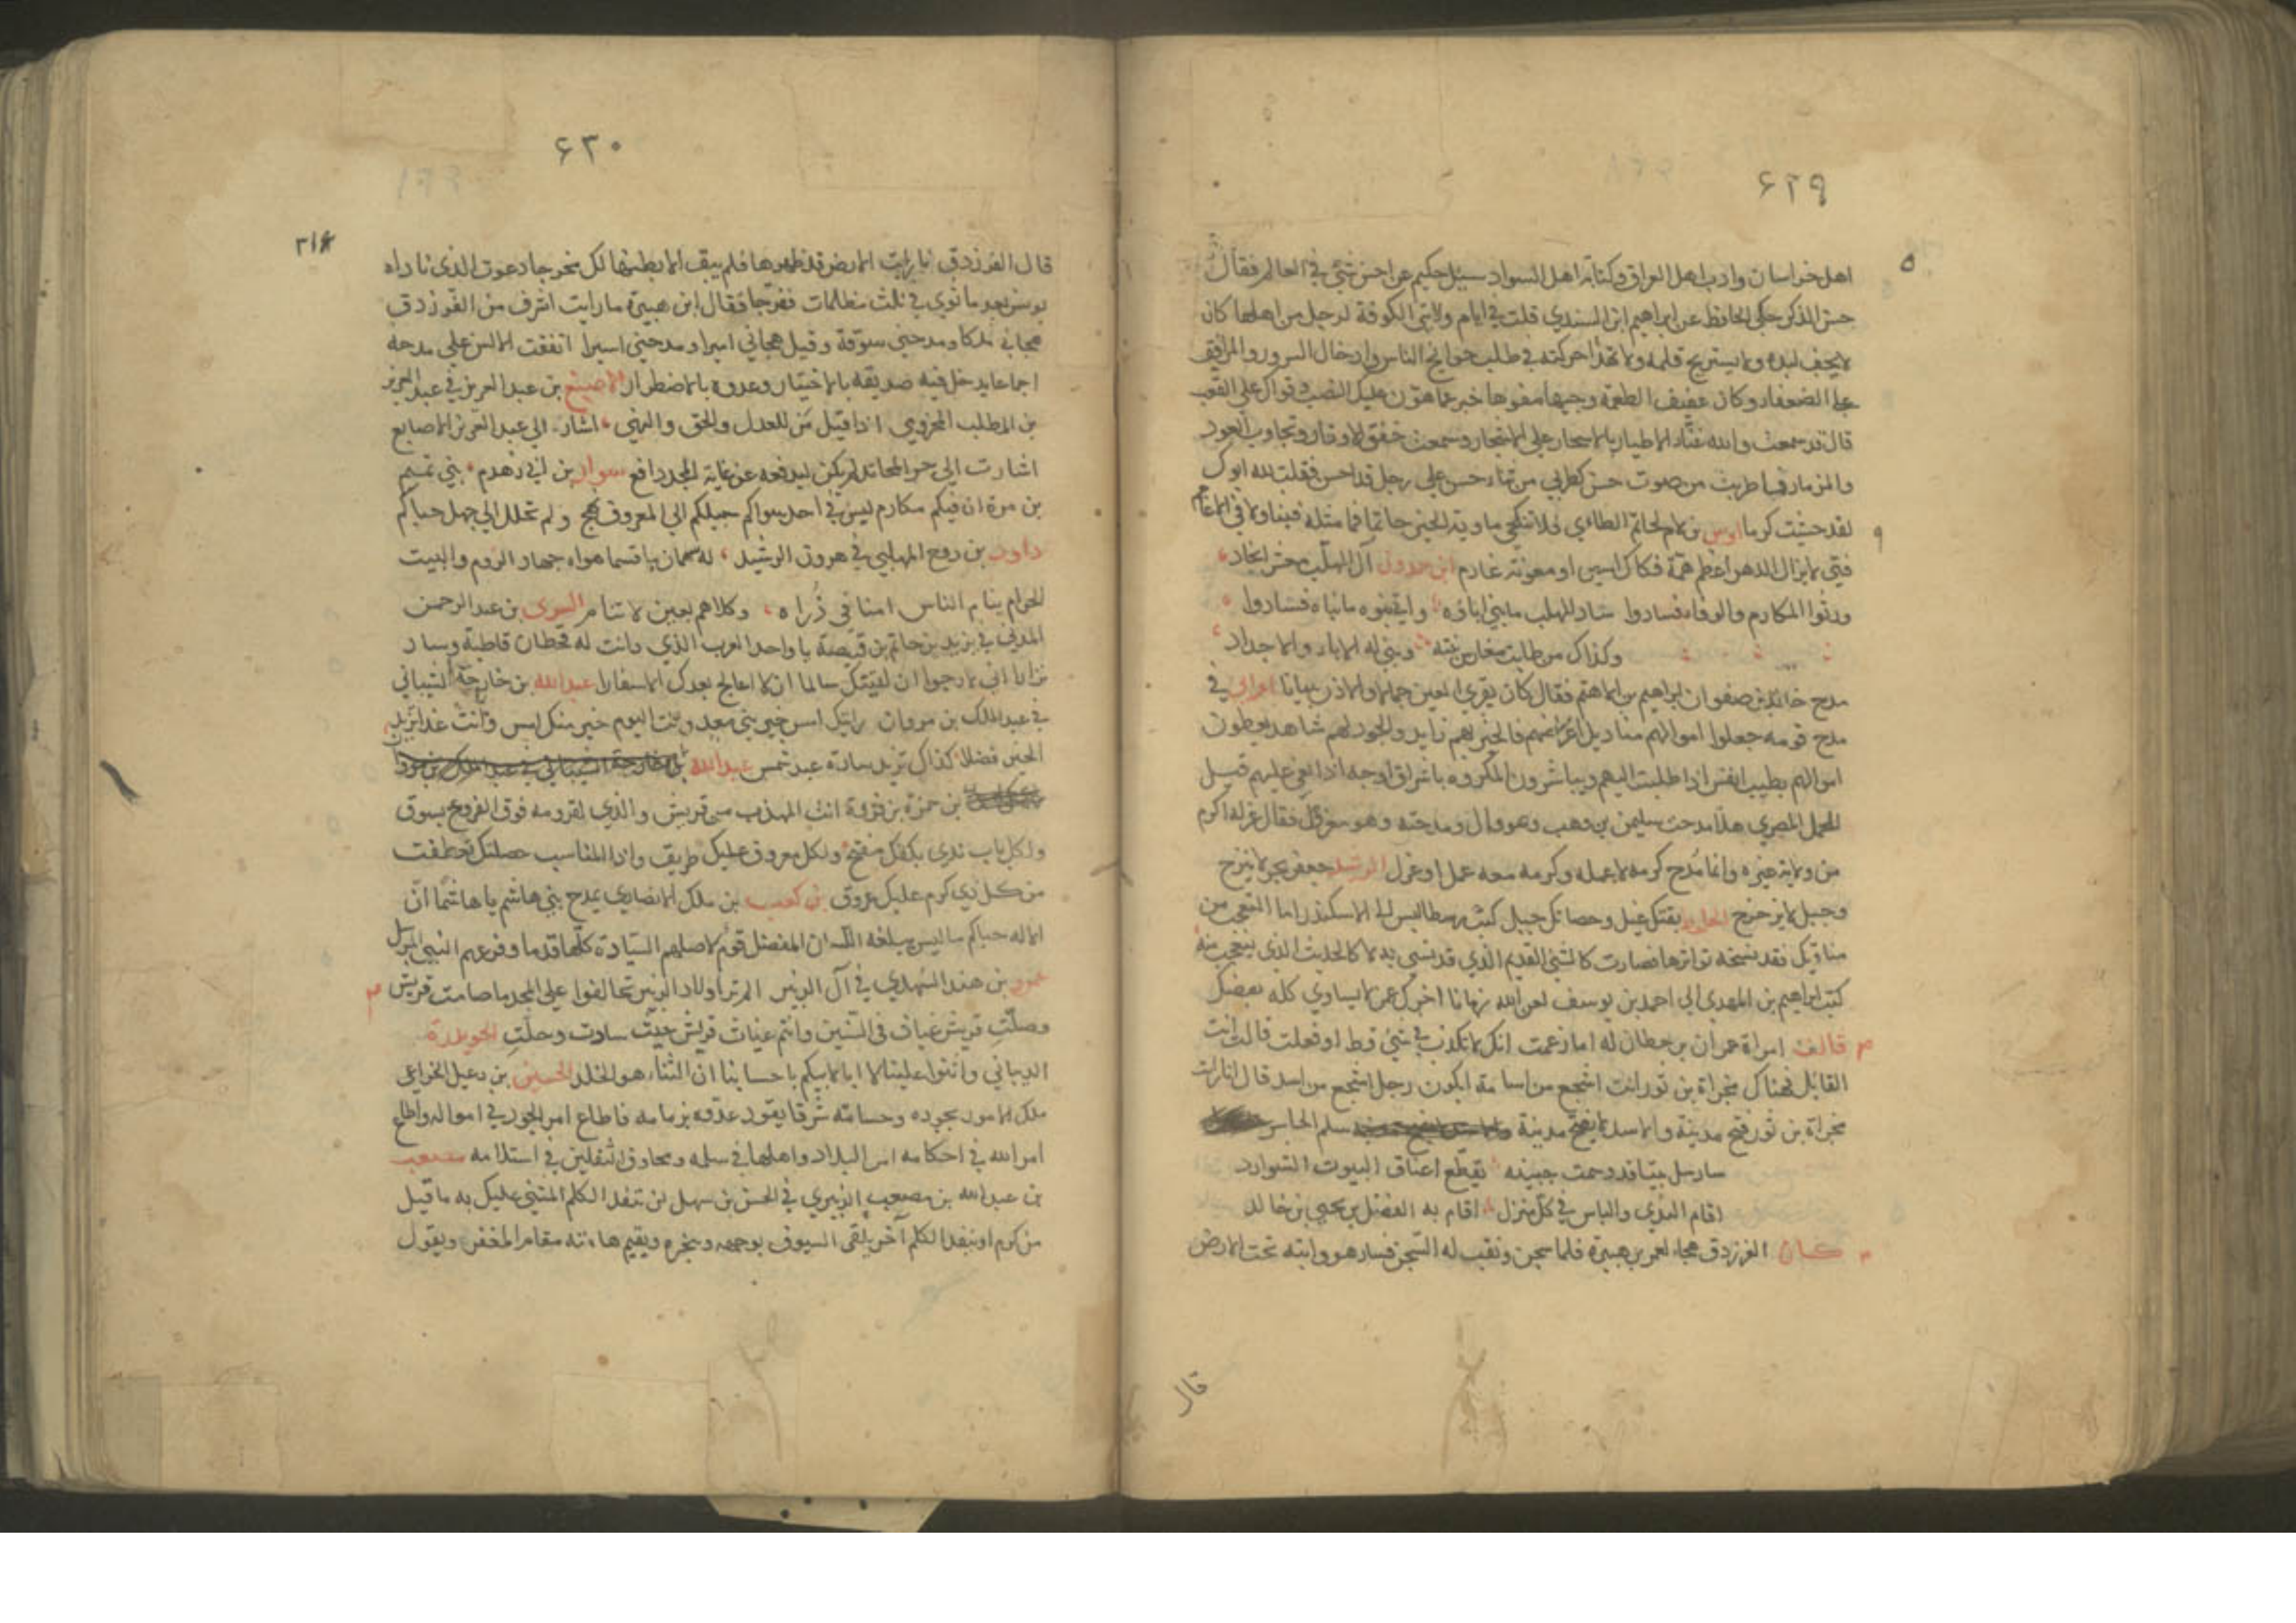 ٤٢٩
اهل خراسان وادب اهل العراق وكتابة اهل السواد سئل حكيم عن احسن شئ في العالم فقال
حسن الذكر حكي الحافظ عن ابراهيم ابن السندي قلت في ايام ولايتي الكوفة لرجل من اهلها كان
لا يجف لبده ولا يستريح قلمه ولا تهدا حركته في طلب حوايج الناس وادخال السرور والمرافق
على الضعفاء وكان عفيف الطعمة وجيها مفوها خبر عما هون عليك النصب وقواك على التعب
قال قد سمعت والله غناء الاطيار بالاسحار على الاشجار وسمعت خفق الاوتار وتجاوب العود
والمزمار فما طربت من صوت حسن كطربي من ثناء حسن على رجل قد احسن فقلت لله ابوك
لقد حشيت كرما اوس بن لام لحاتم الطائي فلا تنكحي ماوية الخير حاتما فما مثله فينا ولا في الاعاجم
فتى لا يزال الدهر اعظم همه فكاك اسير او معونة غارم ابن حمدون آل المهلب معشر انجاد
ورثوا المكارم والوفاء فسادوا شاد المهلب ما بني اباؤه واتي بنوه ما بناه فشادوا
وكذاك من طابت مغارس نبته وبني له الاباء والاجداد
مدح خالد بن صفوان ابراهيم بن الاهتم فقال كان يقري العين جمالا والاذن بيانا اعرابي في
مدح قومه جعلوا اموالهم مناديل اعراضهم فالخير بهم زايد والجود لهم شاهد يعطون
اموالهم بطيب انفس اذا طلبت اليهم ويباشرون المكروه باشراق اوجه اذا بغي عليهم قيل
للجمل المصري هلا مدحت سليمن بن وهب وهو وال ومدحته وهو معزول فقال عزله اكرم
من ولاية غيره وانما مدح كرمه لا عمله وكرمه معه عمل او عزل الرشيد جعفر بحر لا ينزح
وجبل لا يزحزح
مناقبك فقد نسخه تواترها فصارت كالشئ القديم الذي قد نسي به لا كالحديث الذي يتعجب منه
كتب ابراهيم بن المهدي الى احمد بن يوسف لعن الله زمانا اخرك عن لا يساوي كله بعضك
قالت امراة عمران بن حطان له اما زعمت انك لا تكذب في شئ قط او فعلت قالت انت
القايل فهناك مجزاة بن ثور انت اشجع من اسامة ايكون رجل اشجع من اسد قال انا رايت
مجزاة بن ثور فتح مدينة والاسد لا يفتح مدينة سلم الخاسر
سارسل بيتا قد وسمت جبينه يقطع اعناق البيوت الشوارد
اقام الندي والباس في كل منزل اقام به الفضل بن يحيى بن خالد
كان الفرزدق هجاء لعمر بن هبيرة فلما سجن ونقب له السجن فسار هو وابنه تحت الارض
قال
٤٣٠
قال الفرزدق لما رايت الارض قد ظهورها فلم يبق الا بطنها لك مخرجا دعوت الذي ناداه
يونس بعد ما ثوي في ثلث مظلمات ففرجا فقال ابن هبيرة ما رايت اشرف من الفرزدق
هجاني ملكا ومدحني سوقة وقيل هجاني اميرا ومدحني اسيرا اتفقت الالسن على مدحه
اجماعا يدخل فيه صديقه بالاختيار وعدوه بالاضطرار الاصبغ بن عبد العزيز في عبد العزيز
بن المطلب المخزومي اذا قيل من للعدل والحق والنهي اشارت الى عبد العزيز الاصابع
اشارت الى حر المحاتد لم يكن ليدفعه عن غاية المجد دافع سوار بن ابي زهدم بني تميم
بن مرة ان فيكم مكارم ليس في احد سواكم سبيلكم الى المعروف نهج ولم تحلل الى جهل حباكم
داود بن روح المهلبي في هرون الرشيد له همان يا قسما هواه جهاد الروم والبيت
الحرام ينام الناس امنا في ذراه وكلاهم بعين لا تنام السري بن عبد الرحمن
المدني في يزيد بن حاتم بن قبيصة يا واحد العرب الذي دانت له قحطان قاطبة وساد
نزارا اني لارجوا ان لقيتك سالما ان لا اعالج بعدك الاسفارا عبد الله بن خارجة الشيباني
في عبد الملك بن مروان رايتك امس خير بني معد وانت اليوم خير منك امس وانت غدا تزيد
الخير فضلا كذاك تزيد سادة عبد شمس عبد الله
بن حمزة بن فروة انت المهذب من قريش والذي لقرومه فوق الفروع بسوق
ولكل باب ندى بكفك مفتح ولكل معروف عليك طريق واذا المناسب حصلتك تعطفت
من كل ذي كرم عليك عروق بن كعب بن ملك الانصاري يمدح بني هاشم يا هاشما ان
الاله حباكم ما ليس يبلغه اللسان المفضل قوم لاصلهم السيادة كلها قدما وفرعهم النبي المرسل
عمرو بن هند النهدي في آل الزبير الم تر اولاد الزبير تحالفوا على المجد ما صامت قريش
وصلت قريش غياث في السنين وانتم غياث قريش حيث سارت وحلت
الذبياني واثنوا علينا لا ابا لابيكم باحسابنا ان الثناء هو الخلد الحسين بن دعبل الخزاعي
ملك الامور بجوده وحسامه شرفا يقود عدوه بزمامه فاطاع امر الجود في امواله واطاع
امر الله في احكامه امن البلاد واهلها في سلمه استلامه مصعب
بن عبد الله بن مصعب الزبيري في الحسن بن سهل لن تنفد الكلم المثني عليك به ما قيل
من كرم او تنفد الكلم آخر يلقى السيوف بوجهه وبنحره ويقيم هامته مقام المغفر ويقول